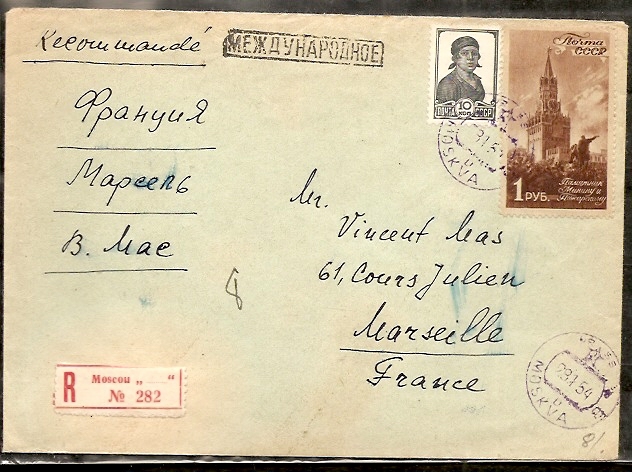 Recommandé
МЕЖДУНАРОДНОЕ
Франция
Марсель
В. Мас
ПОЧТА 10 КОП. СССР
Почта
СССР
1 РУБ.
Памятник
Минину и
Пожарскому
MOSKVA
Mr.
Vincent Mas
61, Cours Julien
Marseille
France
R
Moscou „ — “
№ 282
29.1.54
MOSKVA
8/.